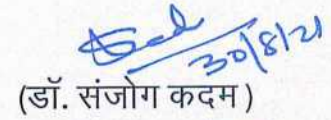 30/8/21
(डॉ. संजोग कदम)